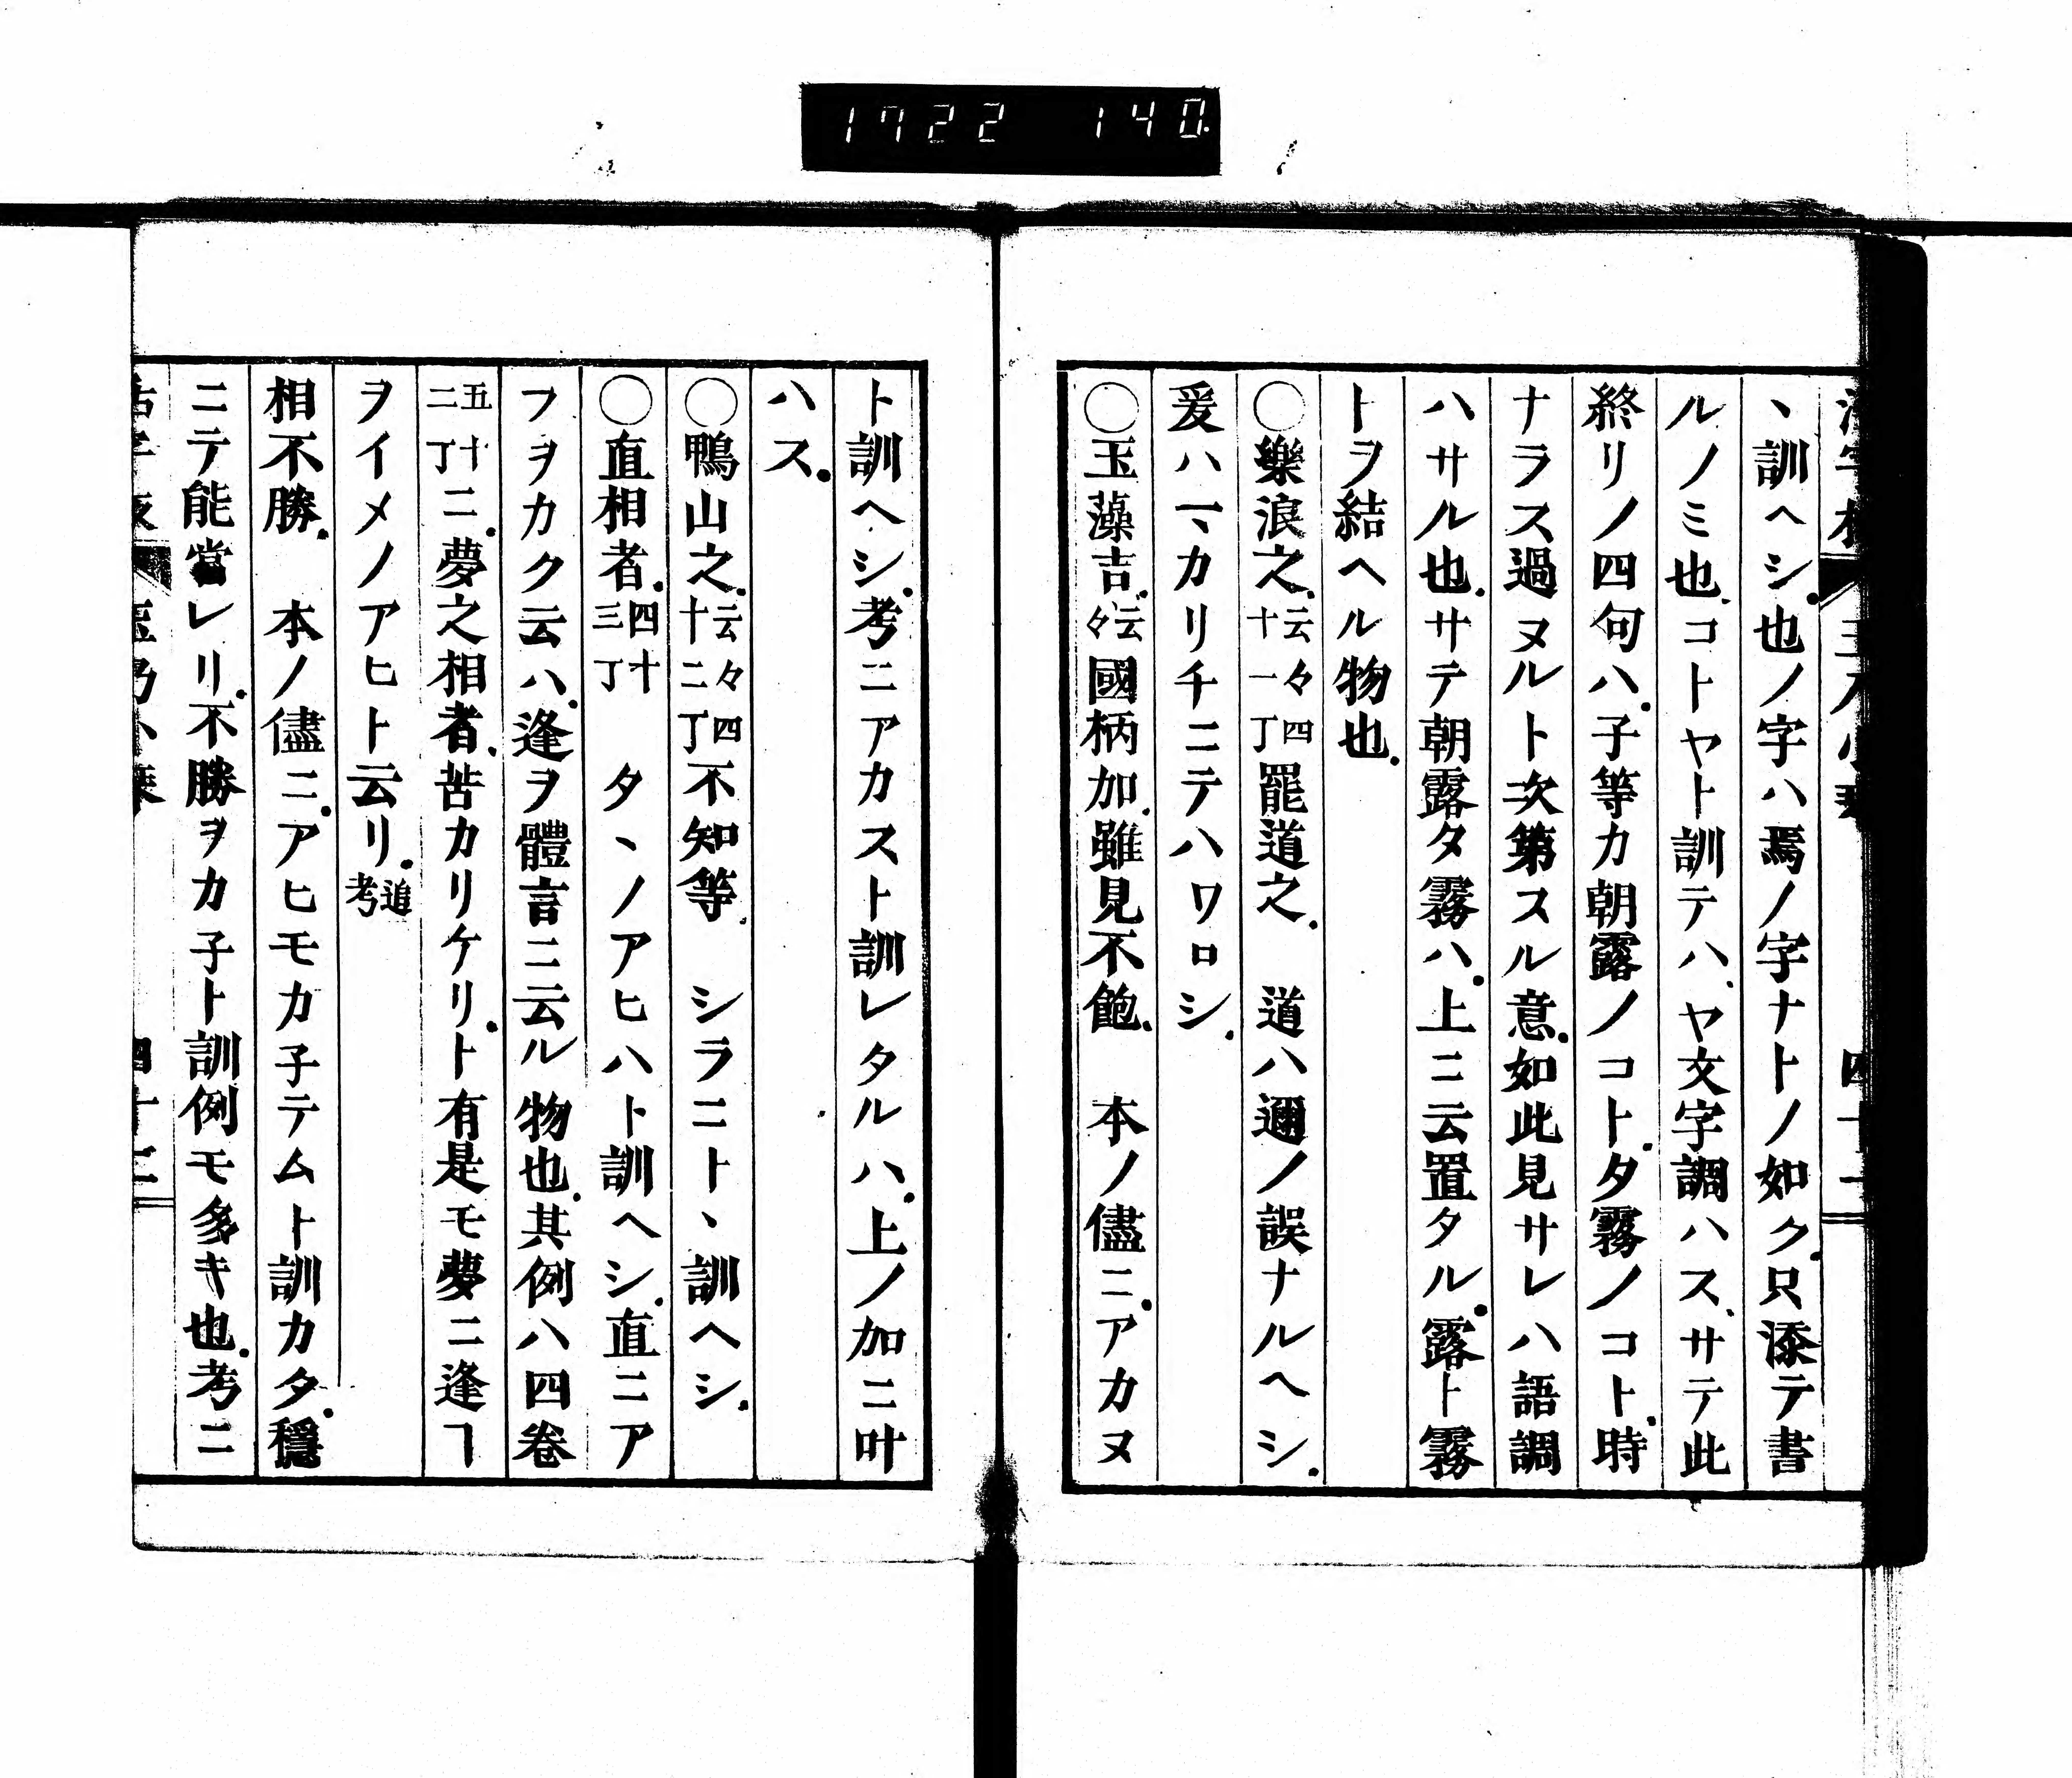 1722 140
ヽ訓ヘシ.也ノ字ハ焉ノ字ナトノ如ク.只添テ書
ルノミ也.コトヤト訓テハ、ヤ文字調ハス、サテ此
終リノ四句ハ.子等カ朝露ノコト.タ霧ノコト.時
ナラス過ヌルト次第スル意.如此見サレハ語調
ハサル也.サテ朝露タ霧ハ.上ニ云置タル.露ト霧
トヲ結ヘル物也.
◯樂浪之.云々四十一丁罷道之. 道ハ邇ノ誤ナルヘシ.
爰ハマカリチニテハワロシ.
◯玉藻吉.云々國柄加.雖見不飽. 本ノ儘ニ.アカヌ
ト訓ヘシ.考ニアカスト訓レタルハ.上ノ加ニ叶
ハス.
◯鴨山之.云々四十二丁不知等. シラニトヽ訓ヘシ.
◯直相者.四十三丁 タヽノアヒハト訓ヘシ.直ニア
フヲカク云ハ.逢ヲ體言ニ云ル物也.其例ハ四卷
五十二丁ニ.夢之相者.苦カリケリ.ト有是モ夢ニ逢ヿ
ヲイメノアヒト云リ.追考
相不勝. 本ノ儘ニ.アヒモカ子テムト訓カタ.穩
ニテ能當レリ.不勝ヲカ子ト訓例モ多キ也.考ニ